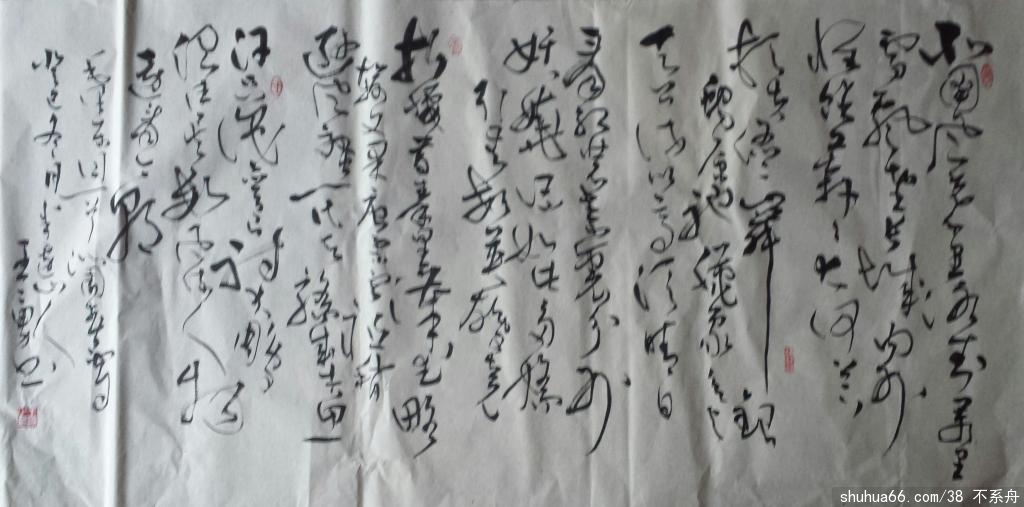 北国风光千里冰封万里
雪飘望长城内外
惟余莽莽大河上下
顿失滔滔山舞银
蛇原驰蜡象欲与
天公试比高须晴日
看红装素裹分外
妖娆江山如此多娇
引无数英雄竞
折腰惜秦皇汉武略
输文采唐宗宋祖稍
逊风骚一代天骄成吉思
汗只识弯弓射大雕
俱往矣数风流人物
还看今朝
毛泽东词一首沁园春雪
癸巳冬月
shuhua66.com/38 不系舟